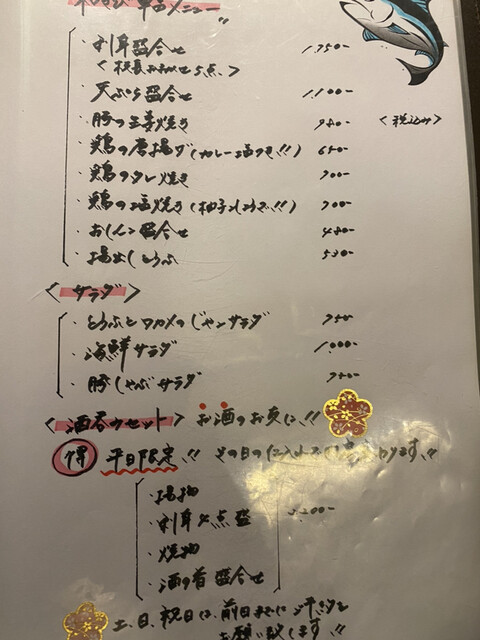 単品メニュー
・刺身盛合せ 1,750-
<板長おまかせ5点>
・天ぷら盛合せ 1,100-
・豚の生姜焼き 980-
<税込み>
・鶏の唐揚げ(カレー塩つき!!) 650-
・鶏のタレ焼き 700-
・鶏の塩焼き(柚子こしょうで!!) 700-
・おしんこ盛合せ 480-
・揚出しとうふ 530-
<サラダ>
・とうふとワカメのじゃこサラダ 750-
・海鮮サラダ 1,000-
・豚しゃぶサラダ
<酒呑みセット> お酒のお友に!!
得 平日限定!! その日の仕入れで ります!!
・揚物
・刺身 点盛
・焼物
・酒の肴盛合せ
,200-
土、日、祝日は、前日までにご予約を
お願い致します!!